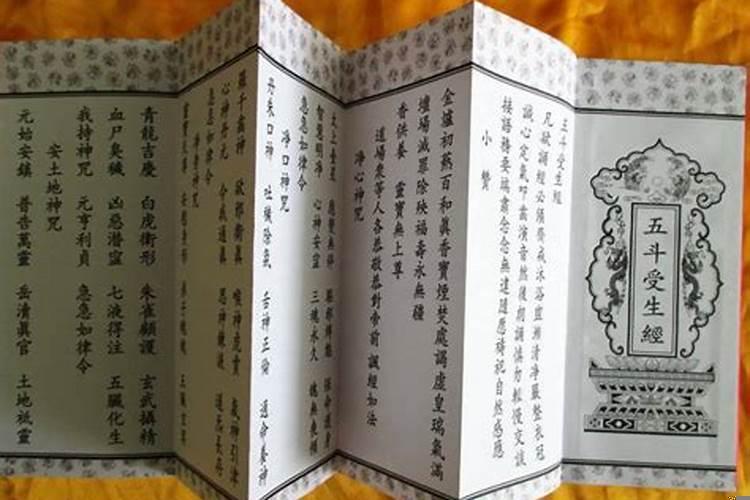 五斗受生經
五斗受生經
凡欲誦經必須齋戒沐浴盥漱清淨嚴整衣冠
誠心定氣叩齒演音然後朗誦慎勿輕慢交談
接語務要端肅念念無違隨應禱祀自然感應
小 贊
金爐初爇百和真香寶煙焚處謁虛皇瑞氣滿
壇場滅罪除殃福壽永無疆
香供養 靈寶無上尊
道場眾等人各恭敬恭對帝前 誦經如法
淨心神咒
太上台星 應變無停 驅邪縛魅 保命護身
智慧明淨 心神安寧 三魂永久 魄無喪傾
急急如律令
淨口神咒
丹朱口神 吐穢除氛 舌神正倫 通命養神
羅千齒神 卻邪衛真 喉神虎賁 氣神引津
心神丹元 令我通真 思神鍊液 道炁長存
急急如律令
淨身神咒
靈寶天尊 安慰身形 弟子魂魄 五臟玄冥
青龍吉慶 白虎衛形 朱雀顧護 玄武攝精
血尸臭穢 凶惡潛窪 七液得注 五臟化生
我持神咒 元亨利貞 急急如律令
安土地神咒
元始安鎮 普告萬靈 岳清真官 土地祇靈